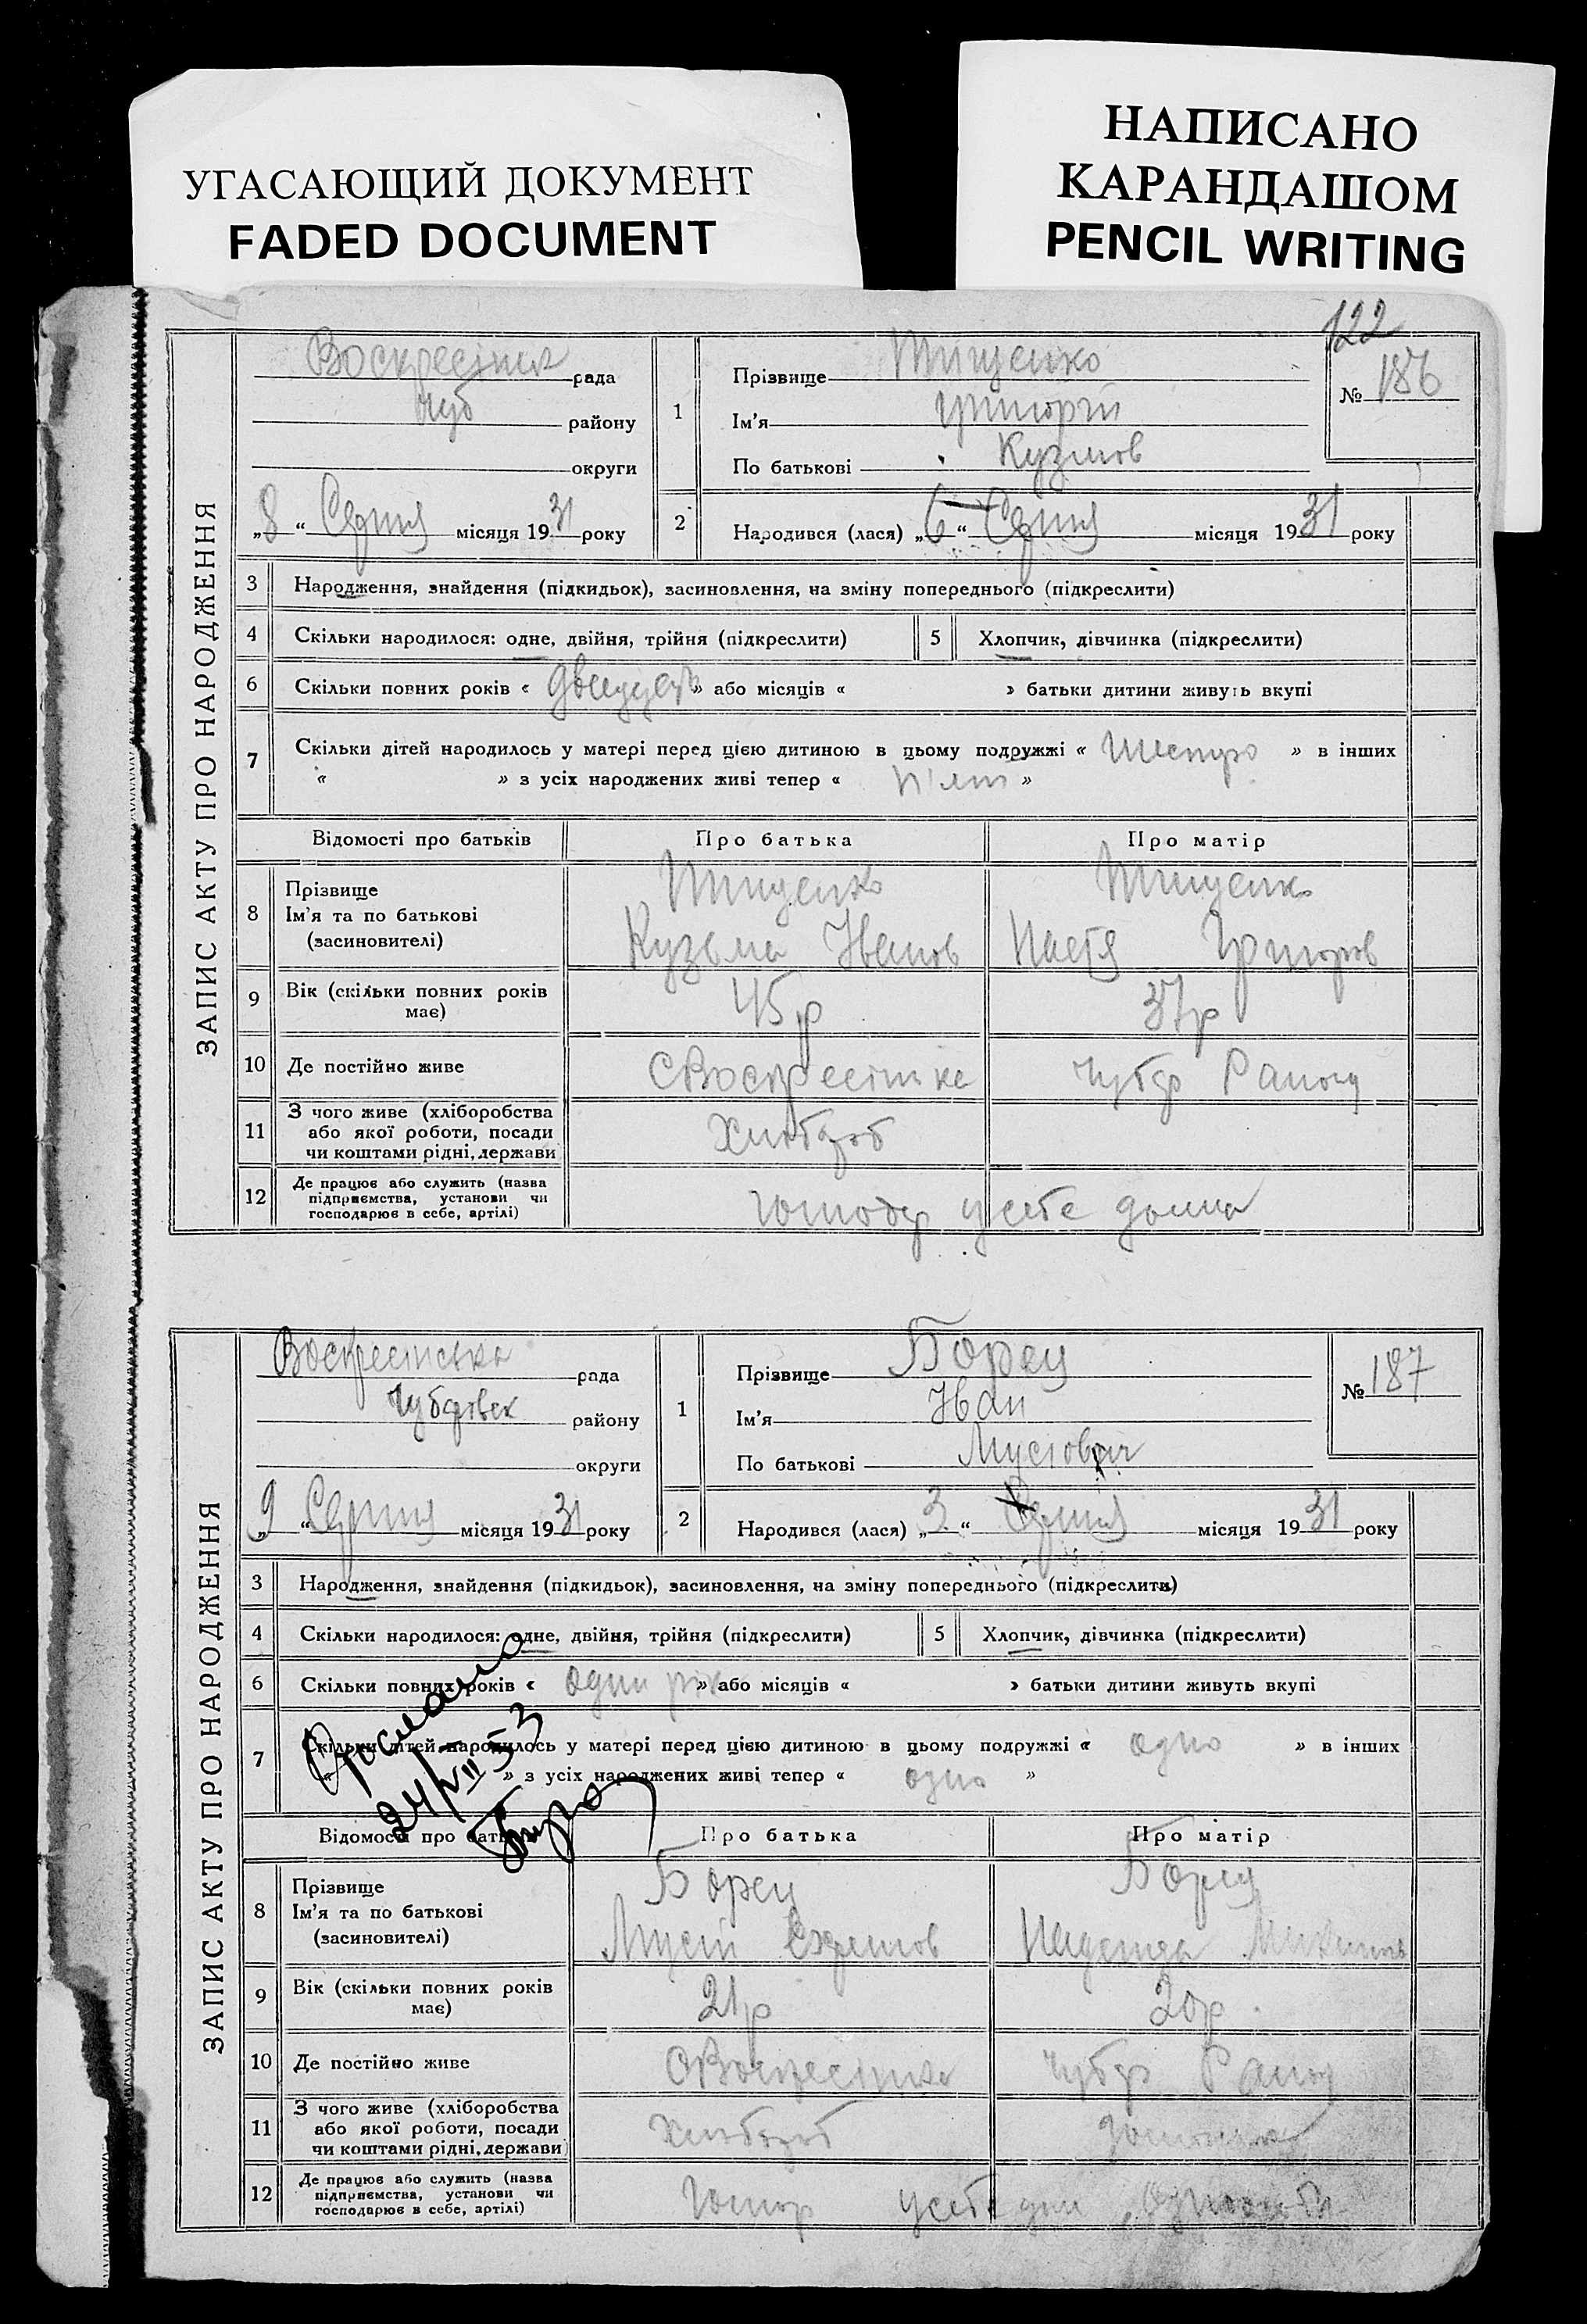 УГАСАЮЩИЙ ДОКУМЕНТ
FADED DOCUMENT
НАПИСАНО
КАРАНДАШОМ
PENCIL WRITING
122
ЗАПИС АКТУ ПРО НАРОДЖЕННЯ
рада
Чуб району
округи
„8“ Серпня місяця 1931 року
1
Прізвище Тищенко
Ім'я Григорій
По батькові Кузмов
№ 186
2 Народився (лася) „6“ Серпня місяця 1931 року
3 Народження, знайдення (підкидьок), засиновлення, на зміну попереднього (підкреслити)
4 Скільки народилося: одне, двійня, трійня (підкреслити) 5 Хлопчик, дівчинка (підкреслити)
6 Скільки повних років « » або місяців « » батьки дитини живуть вкупі
7 Скільки дітей народилось у матері перед цією дитиною в цьому подружжі « » в інших
« » з усіх народжених живі тепер « п'ять »
Відомості про батьків Про батька Про матір
8 Прізвище
Ім'я та по батькові
(засиновителі)
Тищенко
Кузьма Іванов
Тищенк
Настя Григоров
9 Вік (скільки повних років
має)
45 р
37 р
10 Де постійно живе
11 З чого живе (хліборобства
або якої роботи, посади
чи коштами рідні, держави
12 Де працює або служить (назва
підприємства, установи чи
господарює в себе, артілі)
ЗАПИС АКТУ ПРО НАРОДЖЕННЯ
Воскресінська рада
району
округи
„9“ Серпня місяця 1931 року
1
Прізвище Борец
Ім'я Іван
По батькові Мусіович
№ 187
2 Народився (лася) „3“ Серпня місяця 1931 року
3 Народження, знайдення (підкидьок), засиновлення, на зміну попереднього (підкреслити)
4 Скільки народилося: одне, двійня, трійня (підкреслити) 5 Хлопчик, дівчинка (підкреслити)
6 Скільки повних років « один рік » або місяців « » батьки дитини живуть вкупі
7 Скільки дітей народилось у матері перед цією дитиною в цьому подружжі « одно » в інших
« » з усіх народжених живі тепер « одно »
24/VIII 53
Відомості про батьків Про батька Про матір
8 Прізвище
Ім'я та по батькові
(засиновителі)
Борец
Мусій
Борец
Надежда
9 Вік (скільки повних років
має)
21 р
20 р.
10 Де постійно живе
11 З чого живе (хліборобства
або якої роботи, посади
чи коштами рідні, держави
12 Де працює або служить (назва
підприємства, установи чи
господарює в себе, артілі)